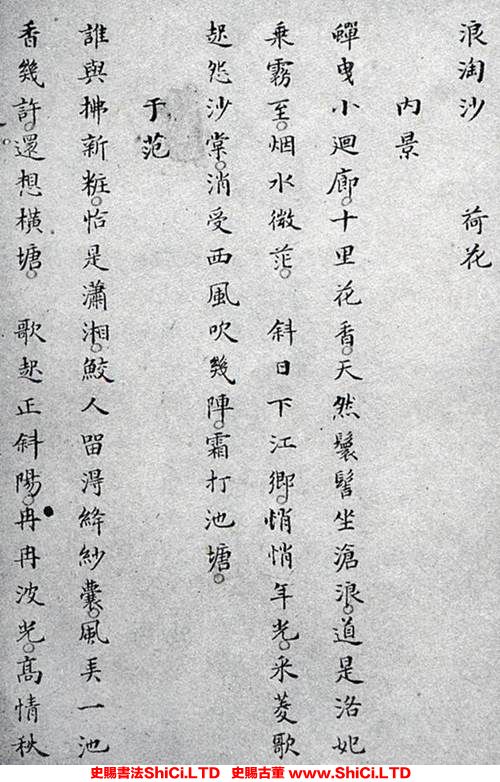 浪淘沙　荷花
内景
嚲曳小迴廊。十里花香。天然鬟髻坐滄浪。道是洛妃
乘霧至。烟水微茫。　斜日下江鄉。悄悄年光。采菱歌
起怨沙棠。消受西風吹幾陣。霜打池塘。
于范
誰與拂新粧。恰是瀟湘。鮫人留得絳紗囊。風美一池
香幾許。還想橫塘。　歌起正斜陽。冉冉波光。高情秋
史賜書法ShiCi.LTD　史賜古董 www.ShiCi.LTD